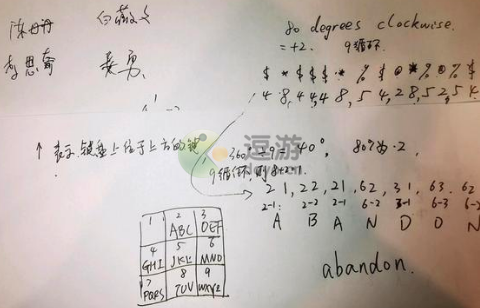 陈丹丹 白薇
李思 姜勇
80 degrees clockwise.
= +2. 9循环.
$ * $ $ $ * % $ @ * % @ % $
4 8, 4 4, 4 8, 5 4, 2 8, 5 2, 5
↑ 表示键盘上位于上方的键
360 ÷ 9 = 40°, 80°为·2.
9循环,则8+2=1.
逗游
21, 22, 21, 62, 31, 63, 62
2-1 2-2 2-1 6-2 3-1 6-3 6-2
A B A N D O N
1 2 3
ABC DEF
4 5 6
GHI JKL MNO
7 8 9
PQRS TUV WXYZ
abandon.